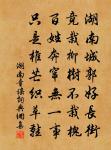 湖南城郭好長街
竟栽柳樹不栽槐
百姓奔窜無一事
只是椎芒織草鞋
湖南童謠